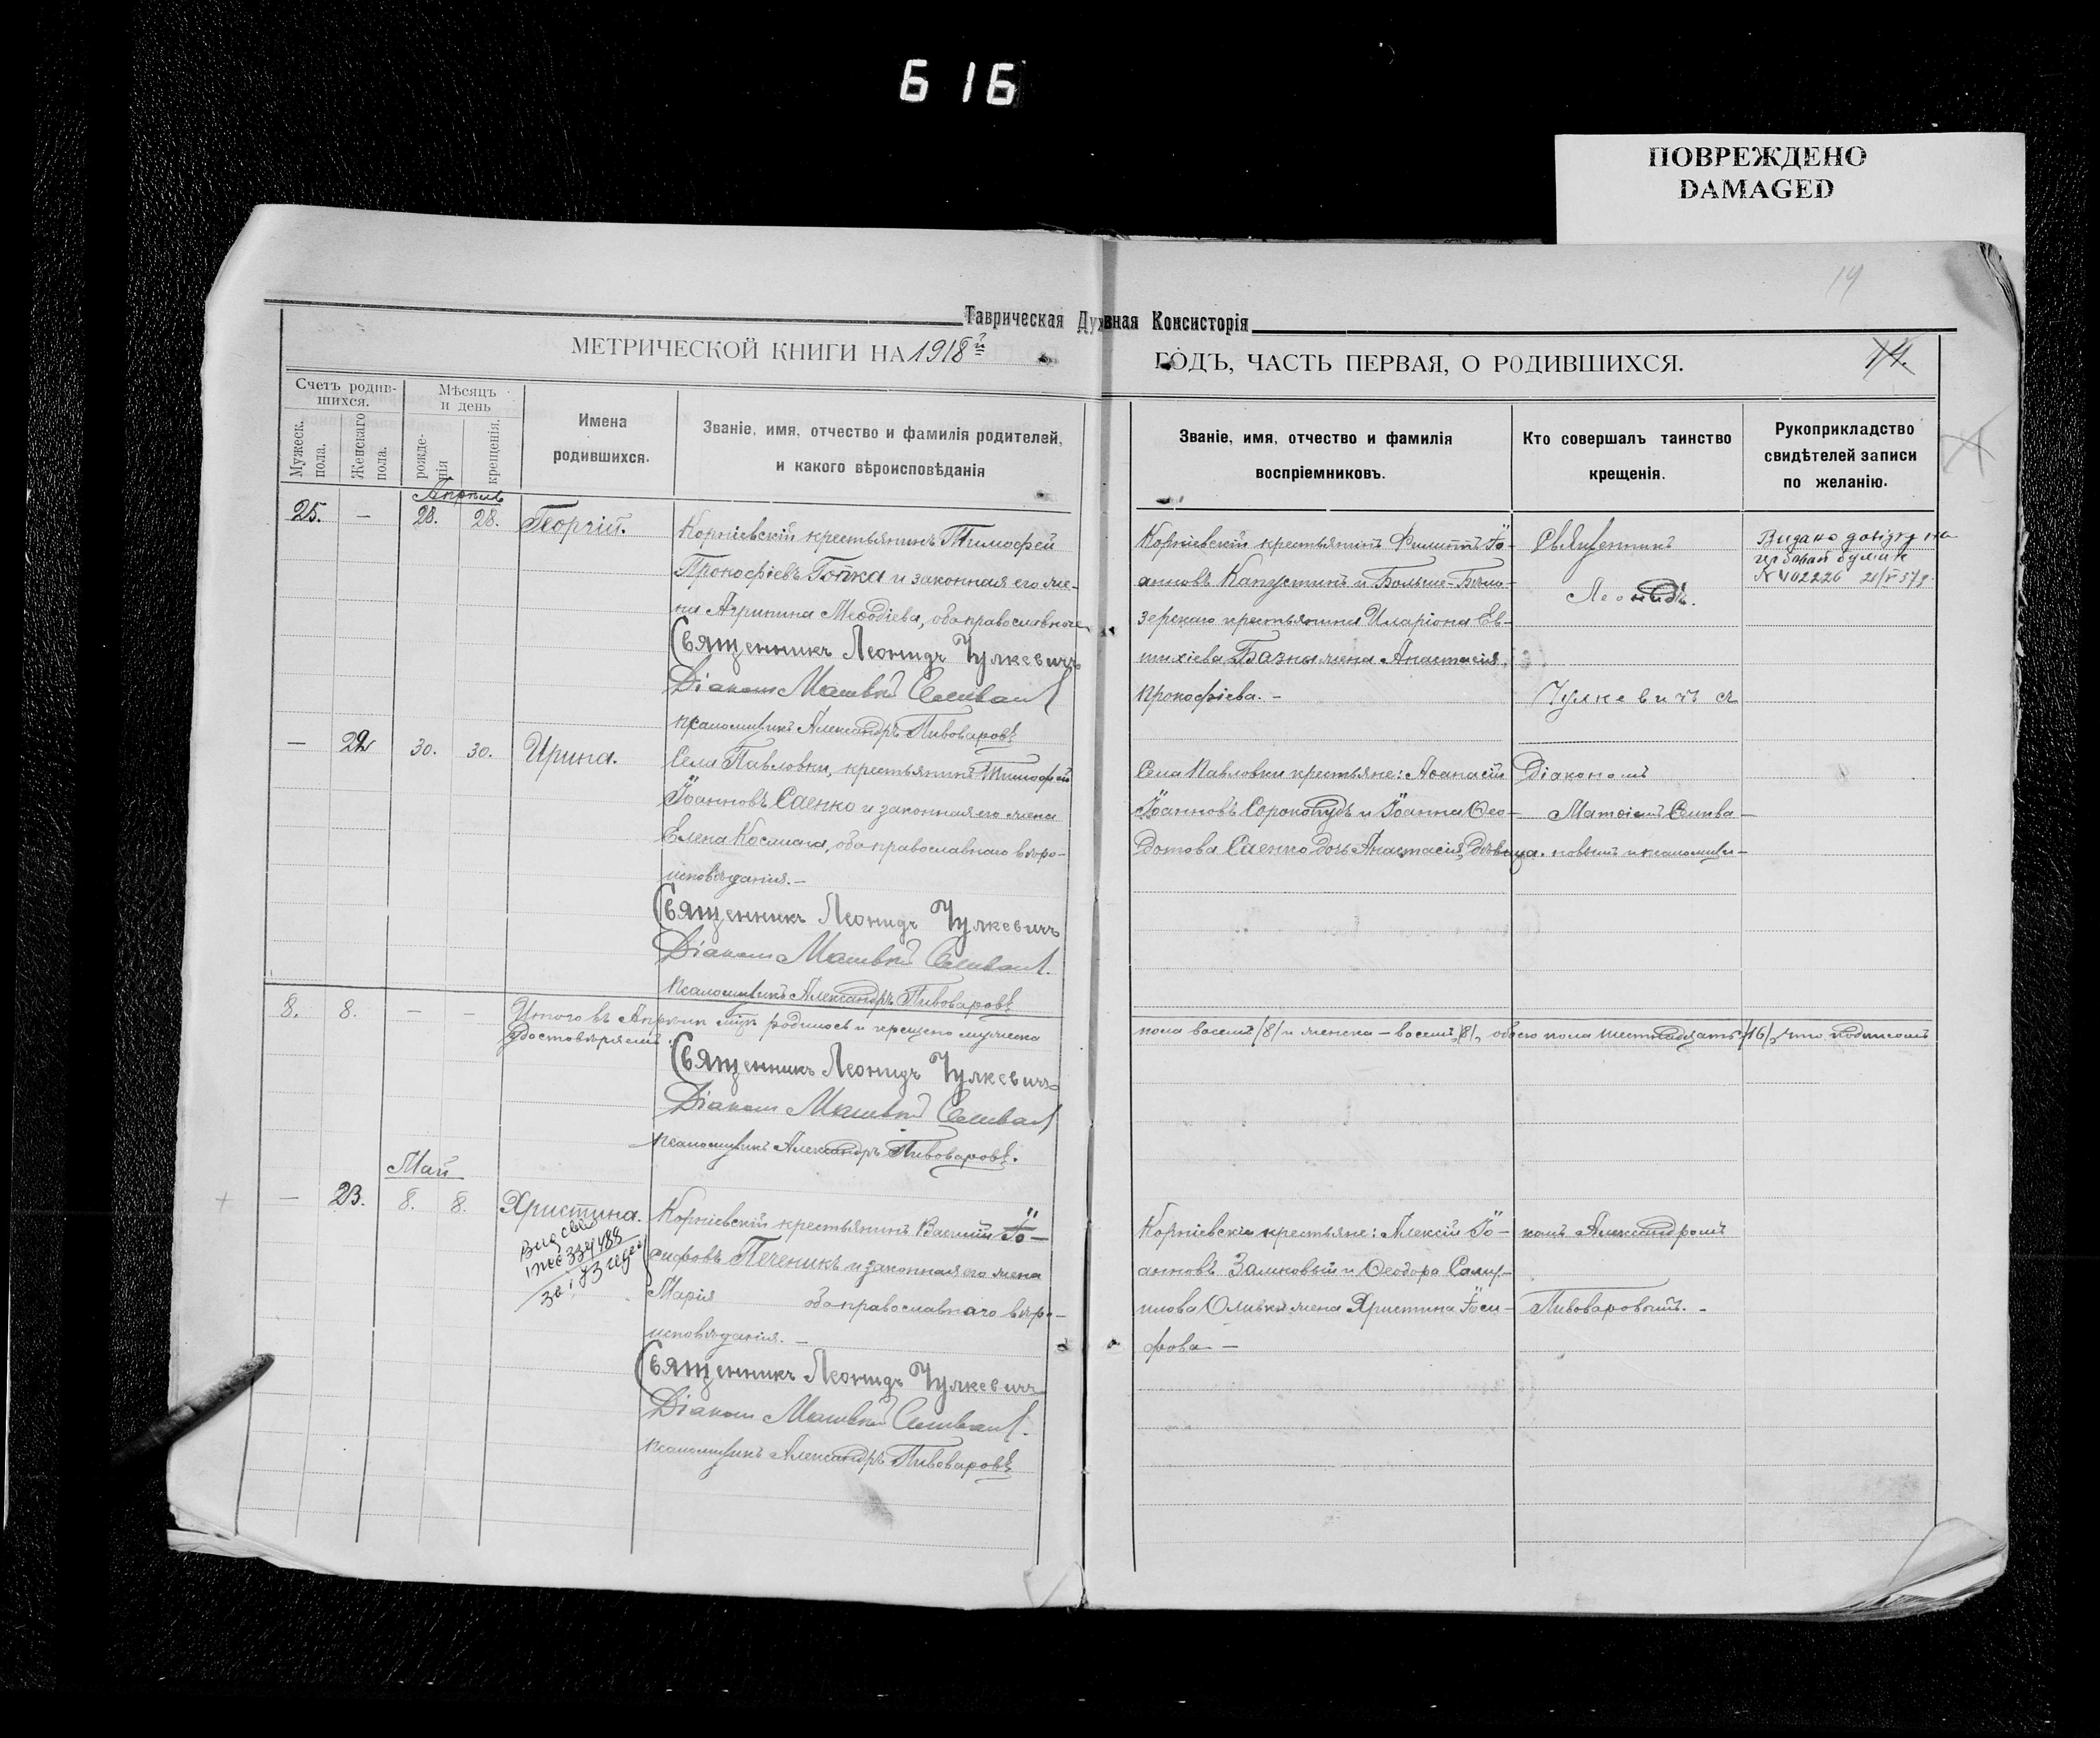 616
ПОВРЕЖДЕНО
DAMAGED
14
Таврическая Духовная Консисторія
МЕТРИЧЕСКОЙ КНИГИ НА 1918й
ГОДЪ, ЧАСТЬ ПЕРВАЯ, О РОДИВШИХСЯ.
14.
Счетъ родив-
шихся.
Мужеск. пола.
Женскаго пола.
Мѣсяцъ
и день
рожде-
нія
крещенія.
Имена
родившихся.
Званіе, имя, отчество и фамилія родителей,
и какого вѣроисповѣданія
Званіе, имя, отчество и фамилія
воспріемниковъ.
Кто совершалъ таинство
крещенія.
Рукоприкладство
свидѣтелей записи
по желанію.
Апрѣль
25. — 28. 28. Георгій.
Корніевскій крестьянинъ Тимофей
Прокофіевъ Гопка и законная его же-
на Агрипина Меѳодіева, оба православнаго
Священникъ Леонидъ Чулкевичъ
Діаконъ Матвѣй Селиванов
Псаломщикъ Александръ Пивоваровъ
Корніевскій крестьянинъ Филиппъ Іо-
анновъ Капустинъ и Больше-Бѣло-
зерскаго крестьянина Иларіона Ев-
тихіева Базна жена Анастасія
Прокофіева. -
Священникъ
Леонидъ.
Чулкевичъ
Видано довідку на
гербовай бумаге
N 402226
— 22 30. 30. Ирина.
Села Павловки, крестьянинъ Тимофей
Іоанновъ Саенко и законная его жена
Елена Космина, оба православнаго вѣро-
исповѣданія. —
Священникъ Леонидъ Чулкевичъ
Діаконъ Матвѣй Селиванов.
Псаломщикъ Александръ Пивоваровъ
Села Павловки крестьяне: Аѳанасій
Іоанновъ Сорокопудъ и Іоанна Ѳео-
дотова Саенко дочь Анастасія, дѣвица.
Діакономъ
Матѳіемъ Селива-
новымъ и псаломщи-
8. 8. — — Итого въ Апрѣлѣ мцѣ родилось и крещено мужеска
пола восемь /8/ и женска - восемь /8/, обоего пола шестнадцать /16/, что подписомъ
удостовѣряемъ.
Священникъ Леонидъ Чулкевичъ
Діаконъ Матвѣй Селиванов
Псаломщикъ Александръ Пивоваровъ.
Май
— 23. 8. 8. Христина.
Корніевскій крестьянинъ Василій Іо-
сифовъ Печеникъ и законная его жена
Марія оба православнаго вѣро-
исповѣданія. —
Священникъ Леонидъ Чулкевичъ
Діаконъ Матвѣй Селиванов.
Псаломщикъ Александръ Пивоваровъ
Корніевскіе крестьяне: Алексій Іо-
анновъ Замковый и Ѳеодора Саму-
илова Оливки жена Христина Іоси-
фова —
комъ Александромъ
Пивоваровымъ. -